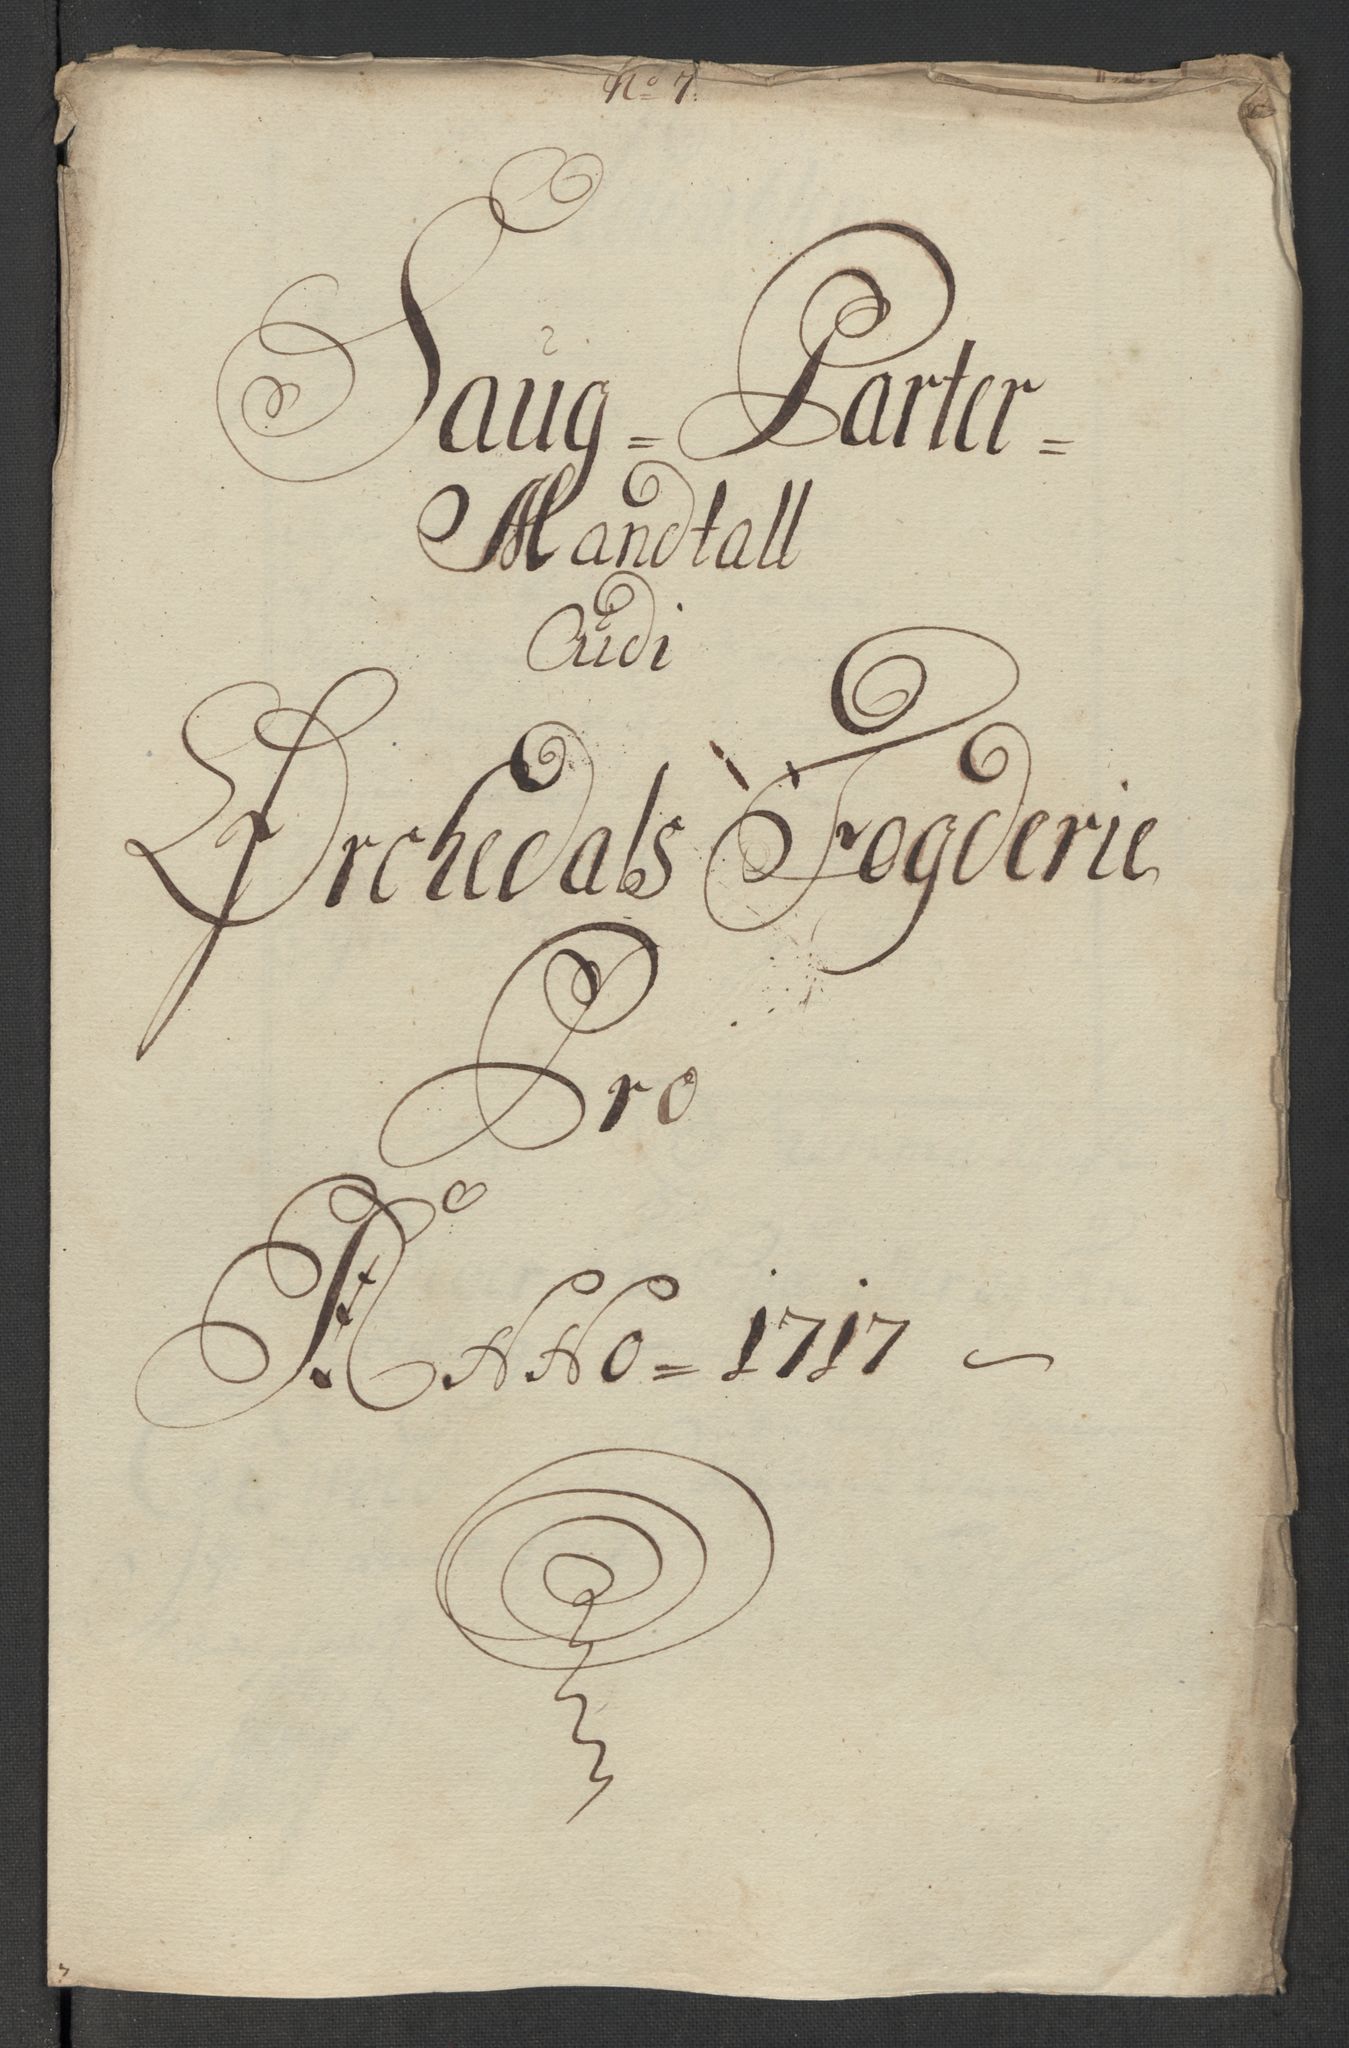 No 7.
Saug= Parter=
Mandtall
Udi
Orchedals Fogderie
Pro
Anno= 1717